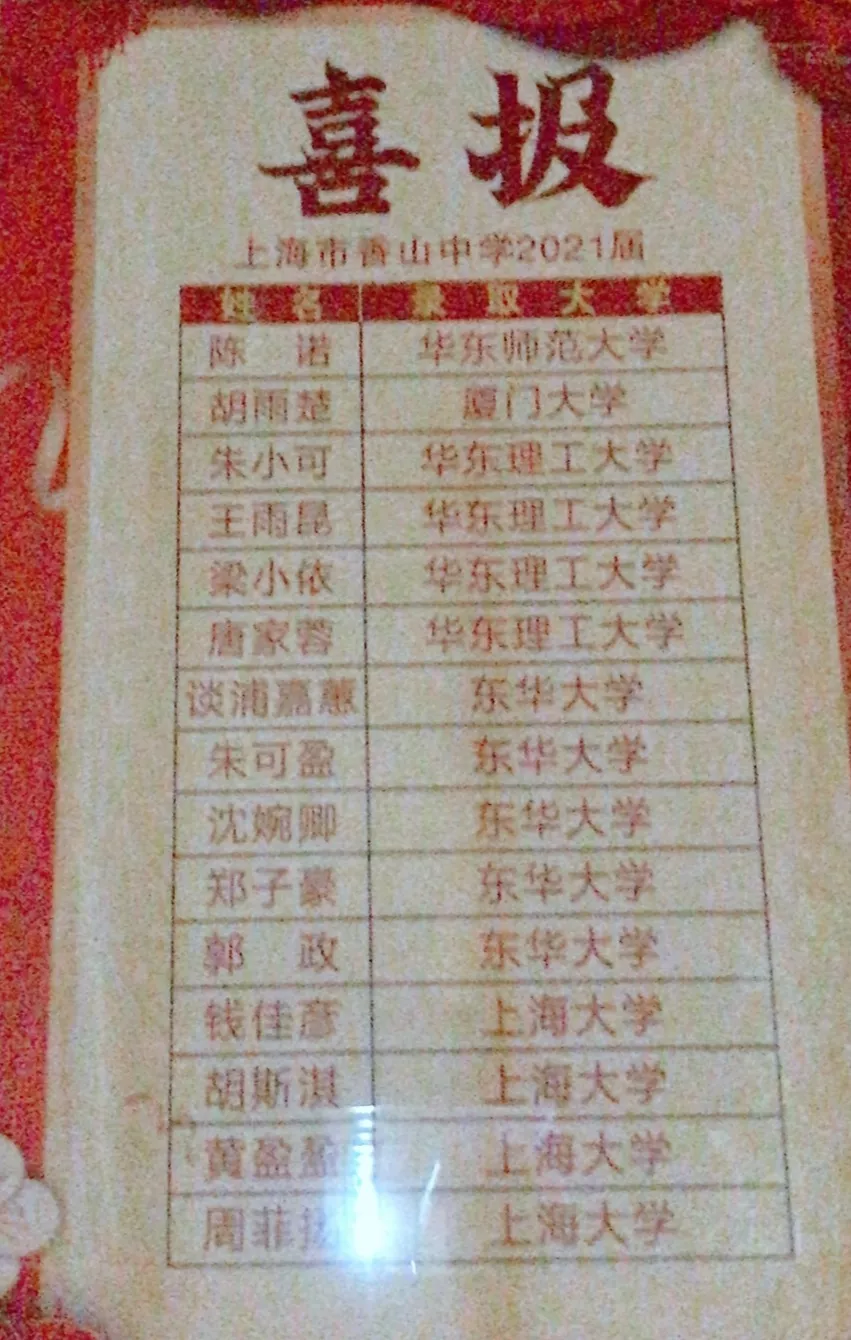 喜报
上海市香山中学2021届
姓名 录取大学
陈诺 华东师范大学
胡雨楚 厦门大学
朱小可 华东理工大学
王雨昆 华东理工大学
梁小依 华东理工大学
唐家蓉 华东理工大学
谈浦嘉蕙 东华大学
朱可盈 东华大学
沈婉卿 东华大学
郑子豪 东华大学
郭政 东华大学
钱佳彦 上海大学
胡斯淇 上海大学
黄盈盈 上海大学
周菲 上海大学